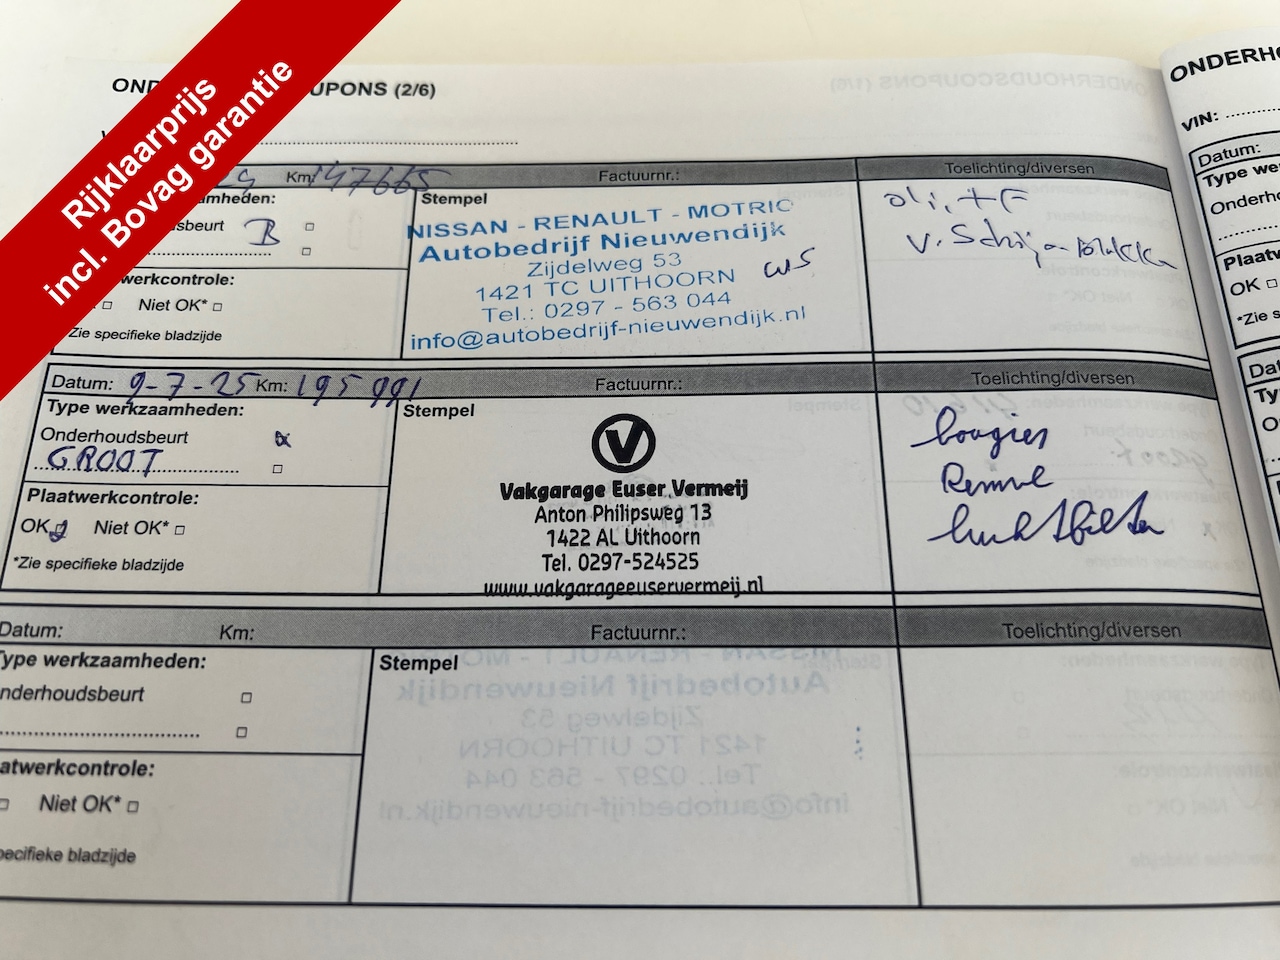 Rijklaarprijs
incl. Bovag garantie
UPONS (2/6)
ONDERHO
VIN:
Km: 147665
Factuurnr.:
Toelichting/diversen
Stempel
B
NISSAN - RENAULT - MOTRIO
Autobedrijf Nieuwendijk
Zijdelweg 53
1421 TC UITHOORN
Tel.: 0297 - 563 044
info@autobedrijf-nieuwendijk.nl
oli + F
Niet OK*
Zie specifieke bladzijde
Datum: 9-7-25 Km: 195 991
Factuurnr.:
Toelichting/diversen
Type werkzaamheden:
Onderhoudsbeurt
GROOT
Plaatwerkcontrole:
OK Niet OK*
*Zie specifieke bladzijde
Stempel
Vakgarage Euser Vermeij
Anton Philipsweg 13
1422 AL Uithoorn
Tel. 0297-524525
www.vakgarageeuservermeij.nl
bougies
Remvl
luchtfilter
Datum: Km:
Factuurnr.:
Toelichting/diversen
Type werkzaamheden:
nderhoudsbeurt
atwerkcontrole:
Niet OK*
pecifieke bladzijde
Stempel
Datum:
Type we
Onderho
Plaatw
OK
*Zie s